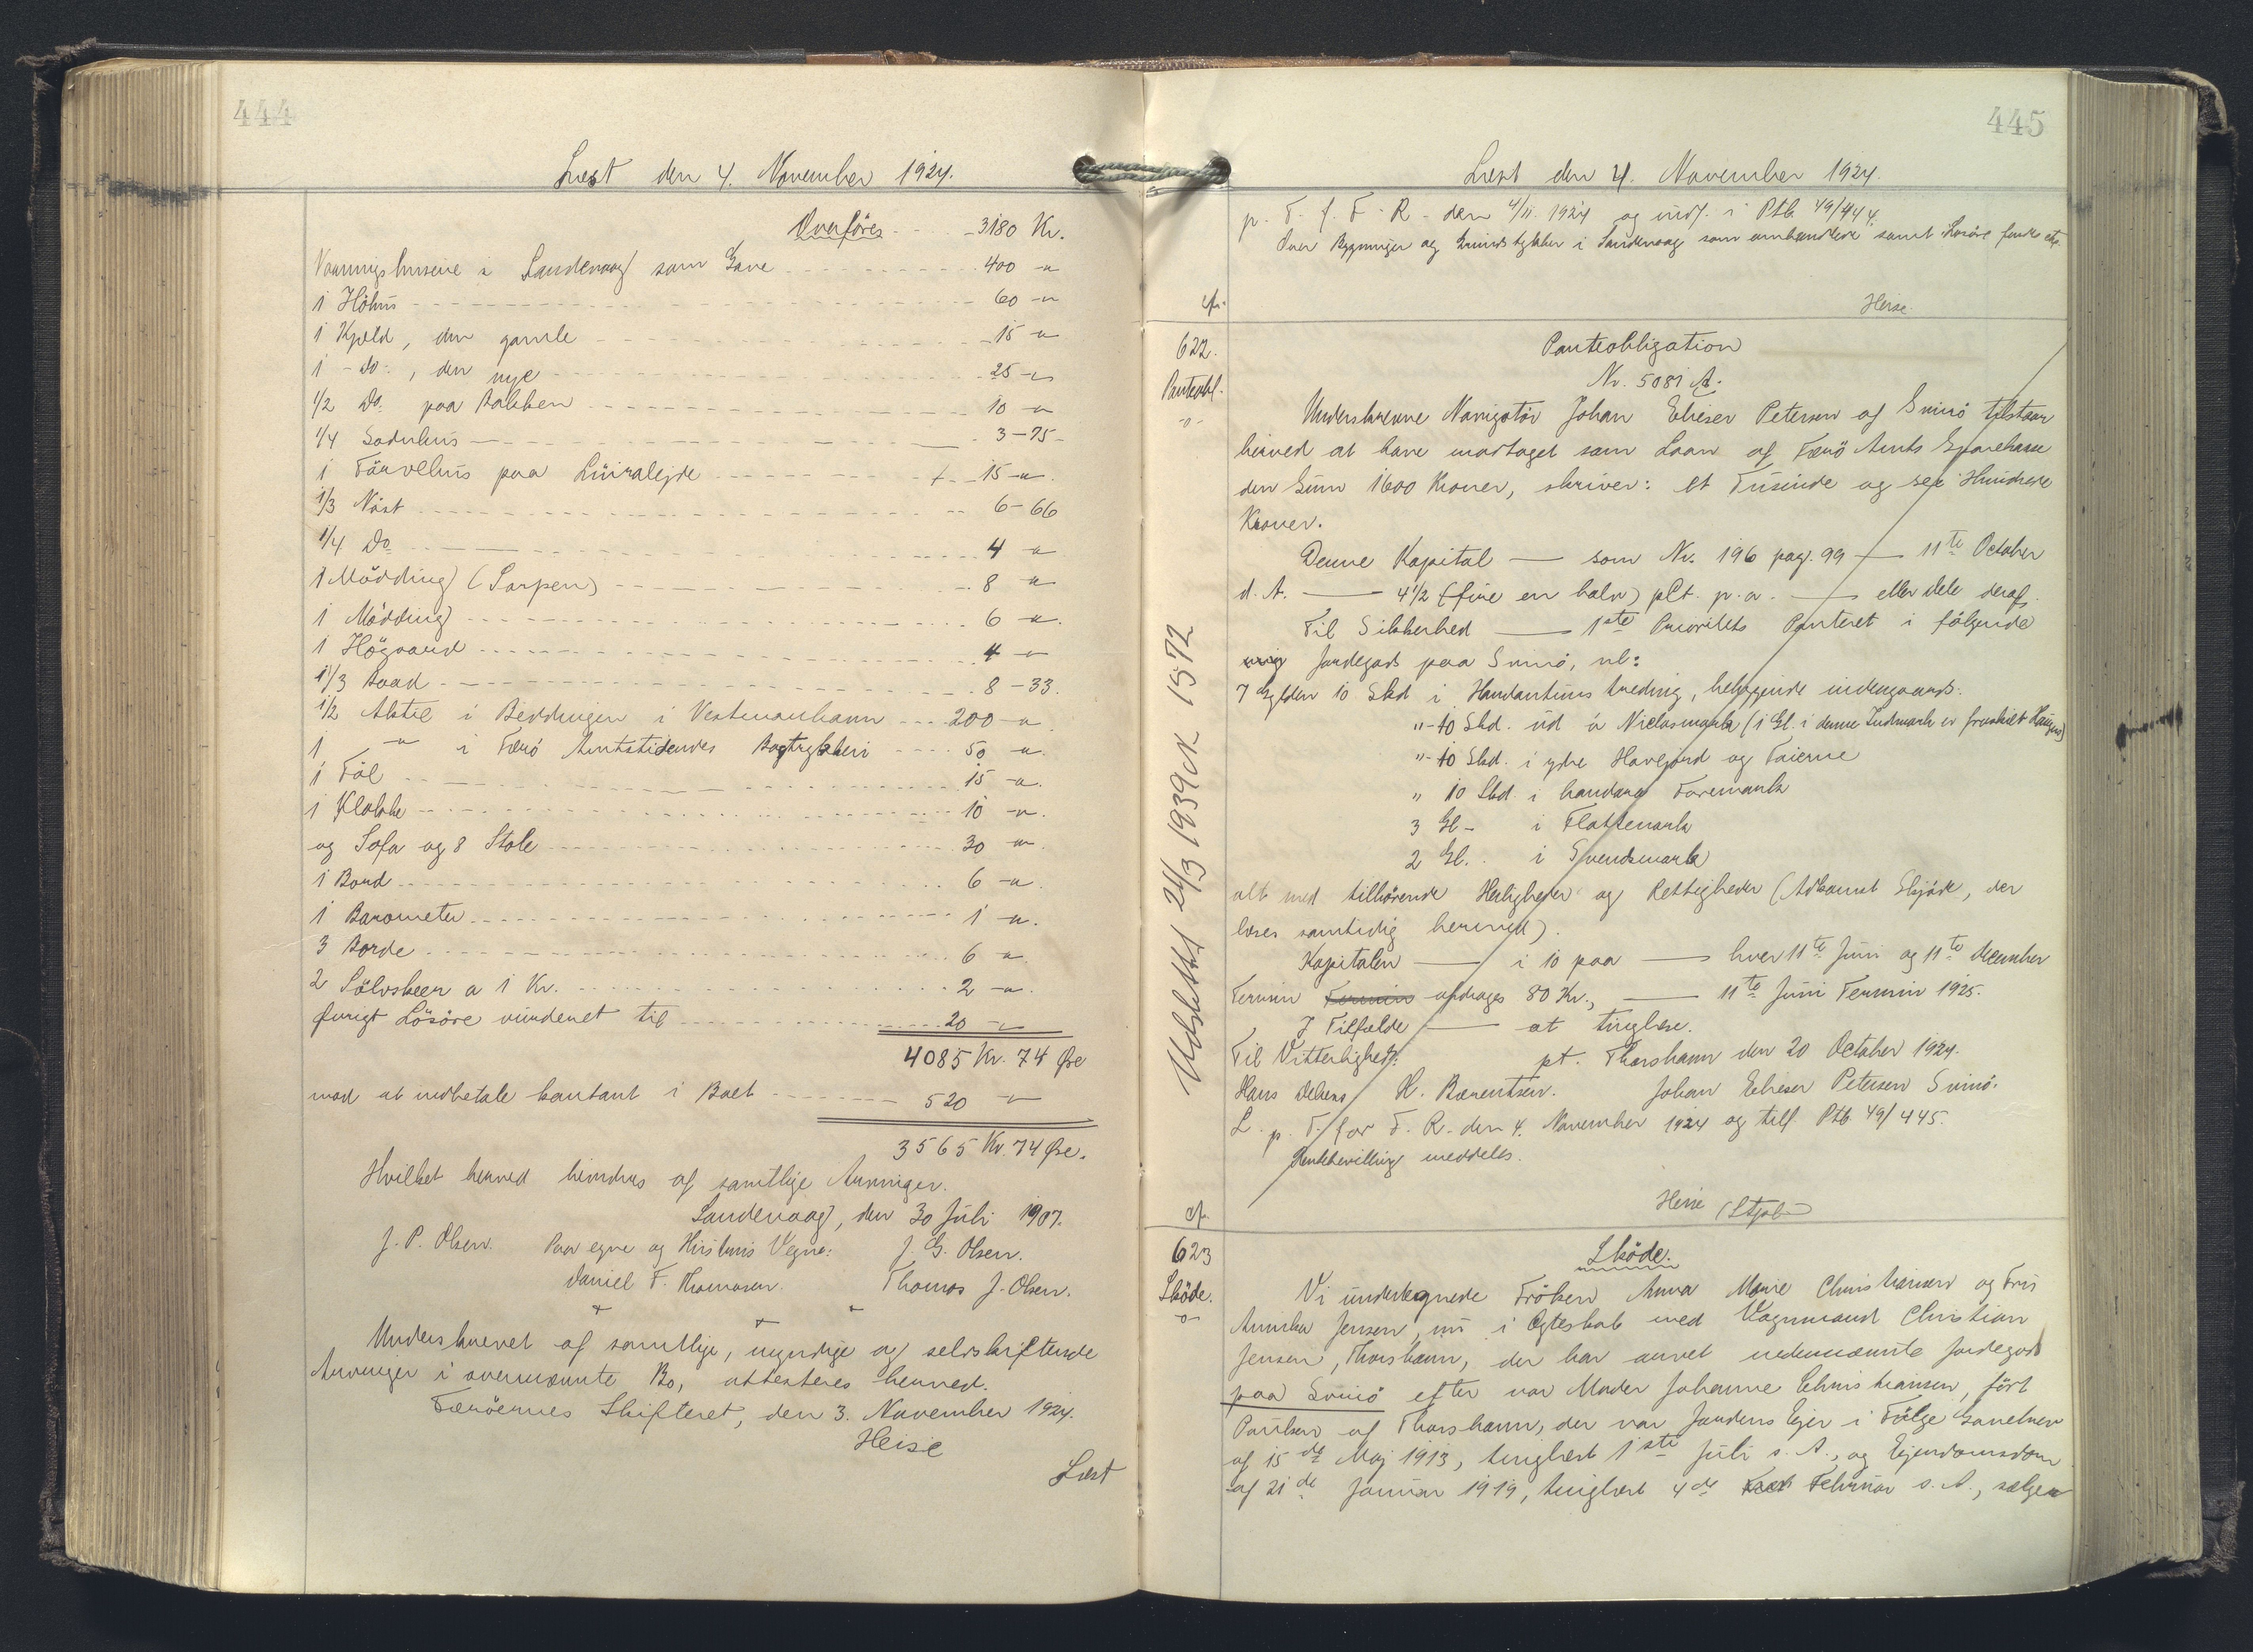 444
Læst den 4. November 1924.
Overføres - - - 3180 Kr.
Vaaningshusene i Sandevaag som Gave - - - 400 -"-
1 Höhus - - - 60 -"-
1 Kjeld, den gamle - - - 15 -"-
1 - Do:, den nye - - - 25 -"-
1/2 Do. paa Bakken - - - 10 -"-
1/4 Sodnhus - - - 3-75-
1 Törvehus paa - - - 15 -"-
1/3 Nöst - - - 6-66
1/4 Do - - - 4 -"-
1 Mödding (Sorpen) - - - 8 -"-
1 Mödding - - - 6 -"-
1 Högaard - - - 4 -"-
1/3 Baad - - - 8-33.
1/2 Aktie i Beddingen i Vestmanhavn - - - 200 -"-
1 -"- i Færö Amtstidendes Bogtrykkeri - - - 50 -"-
1 Föl - - - 15 -"-
1 Klokke - - - 10 -"-
og Sofa og 8 Stole - - - 30 -"-
1 Bord - - - 6 -"-
1 Barometer - - - 1 -"-
3 Borde - - - 6 -"-
2 Sölvskeer a 1 Kr. - - - 2 -"-
Øvrigt Lösöre vurderet til - - - 20 -"-
4085 Kr. 74 Øre
mod at indbetale kontant i Boet - - - 520 -"-
3565 Kr. 74 Øre.
Hvilket herved af samtlige Arvinger.
Sandevaag, den 30 Juli 1907.
J. P. Olsen. Paa egne og Hustrus Vegne: J. G. Olsen.
Daniel F. Thomasen. Thomas J. Olsen.
Underskrevet af samtlige, myndige og selvskiftende
Arvinger i ovennævnte Bo, attesteres herved.
Færöernes Skifteret, den 3. November 1924.
Heise
Læst
445
Læst den 4. November 1924.
p. T. f. F. R. den 4/11. 1924 og indf. i Ptb. 49/444.
Over Bygninger og Grundstykker i Sandevaag som omhandlede samt Lösöre
cfr.
Heise
622.
Panteobl.
-o-
Panteobligation
Nr. 5081 A.
Underskrevne Navigatör Johan Elieser Petersen af Svinö tilstaar
herved at have modtaget som Laan af Færö Amts Sparekasse
den Sum 1600 Kroner, skriver: et Tusinde og sex Hundrede
Kroner.
Denne Kapital — som Nr. 196 pag. 99 — 11te October
d. A. — 4 1/2 (fire en halv) pCt. p. a. — eller dele deraf.
Til Sikkerhed — 1ste Prioritets Panteret i fölgende
Jordegods paa Svinö, nl:
7 Gylden 10 Skd i Handantuns treding, beliggende indengaards.
" - 10 Skd. ud á Niclasmark (1 Gl. i denne Indmark er fraskilt
" - 10 Skd. i ydre Havegjerd og
" 10 Skd. i handara Foremark
3 Gl - i Flattemark
2 Gl. - i Svendsmark
alt med tilhörende Herligheder og Rettigheder (Adkomst Skjöde, der
læses samtidig hermed).
Kapitalen — i 10 paa — hver 11te Juni og 11te December
Termin afdrages 80 Kr., — 11te Juni Termin 1925.
I Tilfælde — at tinglæse.
Til Vitterlighed: pt. Thorshavn den 20 October 1924.
Hans K. Bærentsen. Johan Elieser Petersen Svinö.
L. p. T. for F. R. den 4. November 1924 og tilf. Ptb 49/445.
meddeles.
Heise
Udslettet 24/3 1939 CK 1572
cfr.
623
Sköde.
-o-
Sköde.
Vi undertegnede Fröken Anna Marie Christiansen og Fru
Annika Jensen, nu i Ægteskab med Vognmand Christian
Jensen, Thorshavn, der har arvet nedennævnte Jordegods
paa Svinö efter vor Moder Johanne Christiansen, född
Poulsen af Thorshavn, der var Jordens Ejer i Fölge Gavebrev
af 15de Maj 1913, tinglæst 1ste Juli s. A., og Ejendomsdom
af 21de Januar 1919, tinglæst 4de Februar s. A., sælger